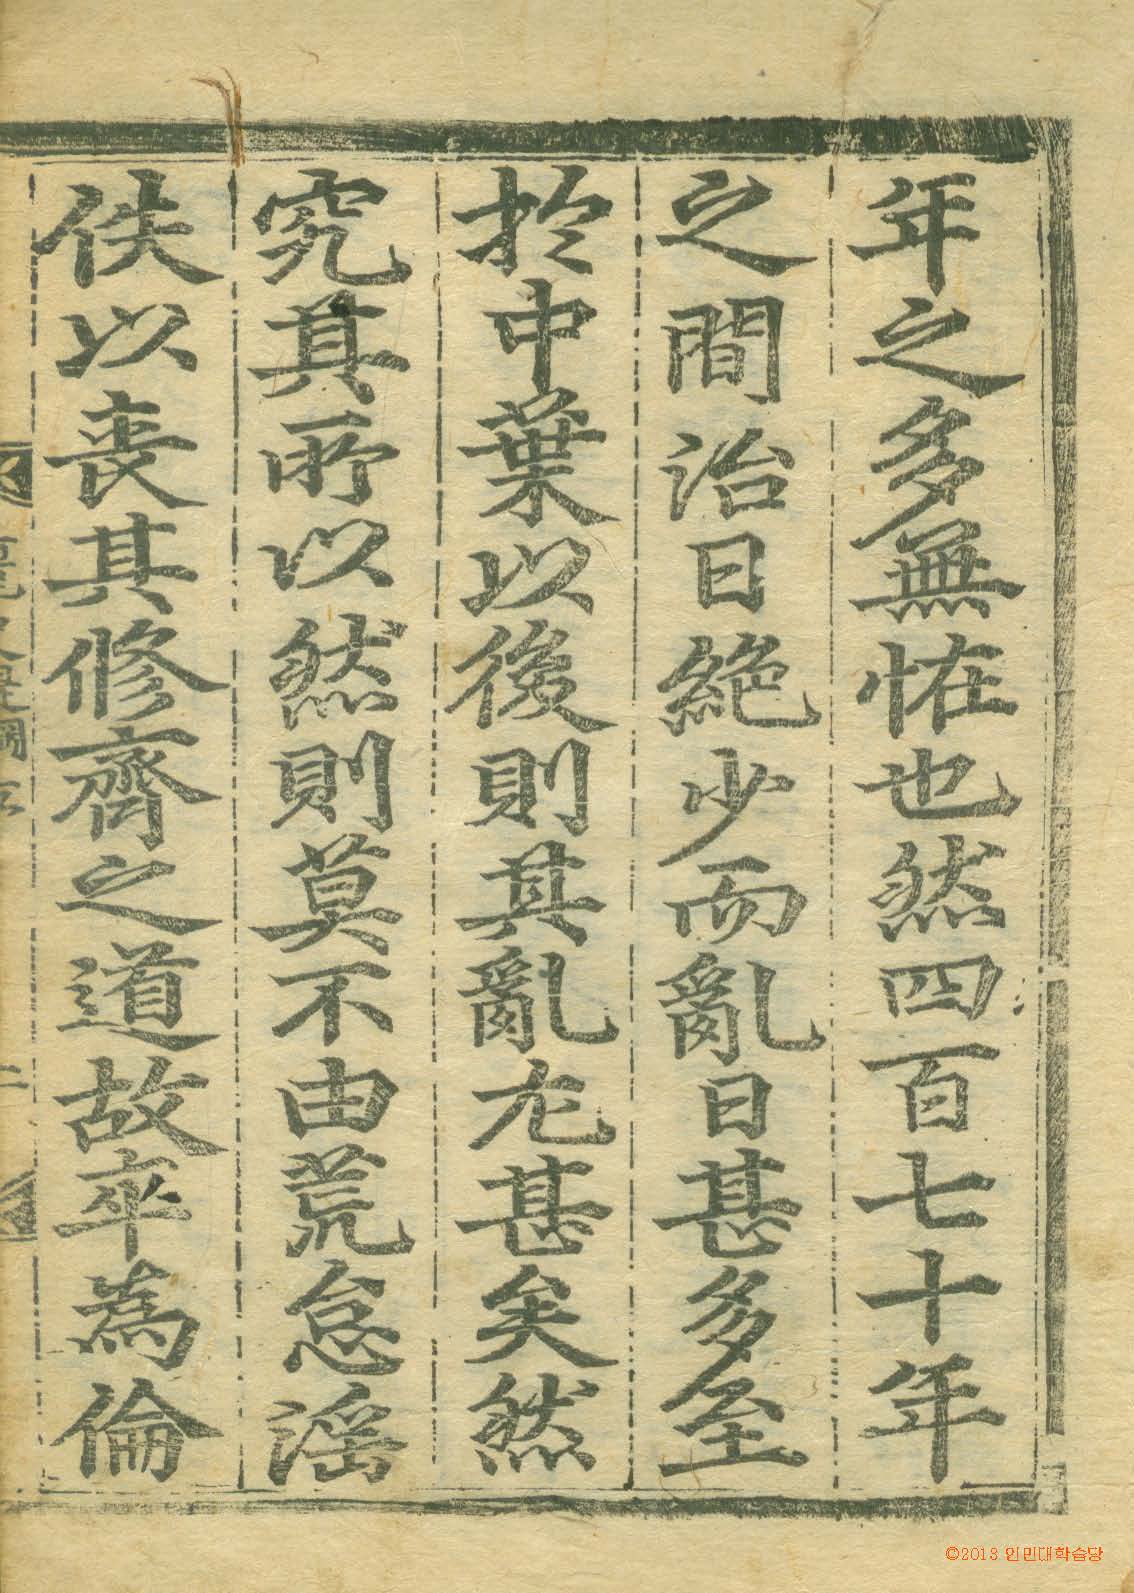 年之多無恠也然四百七十年
之間治日絶少而亂日甚多至
於中葉以後則其亂尤甚矣然
究其所以然則莫不由荒怠滛
佚以喪其修齊之道故卒為倫
二
©2013 인민대학습당